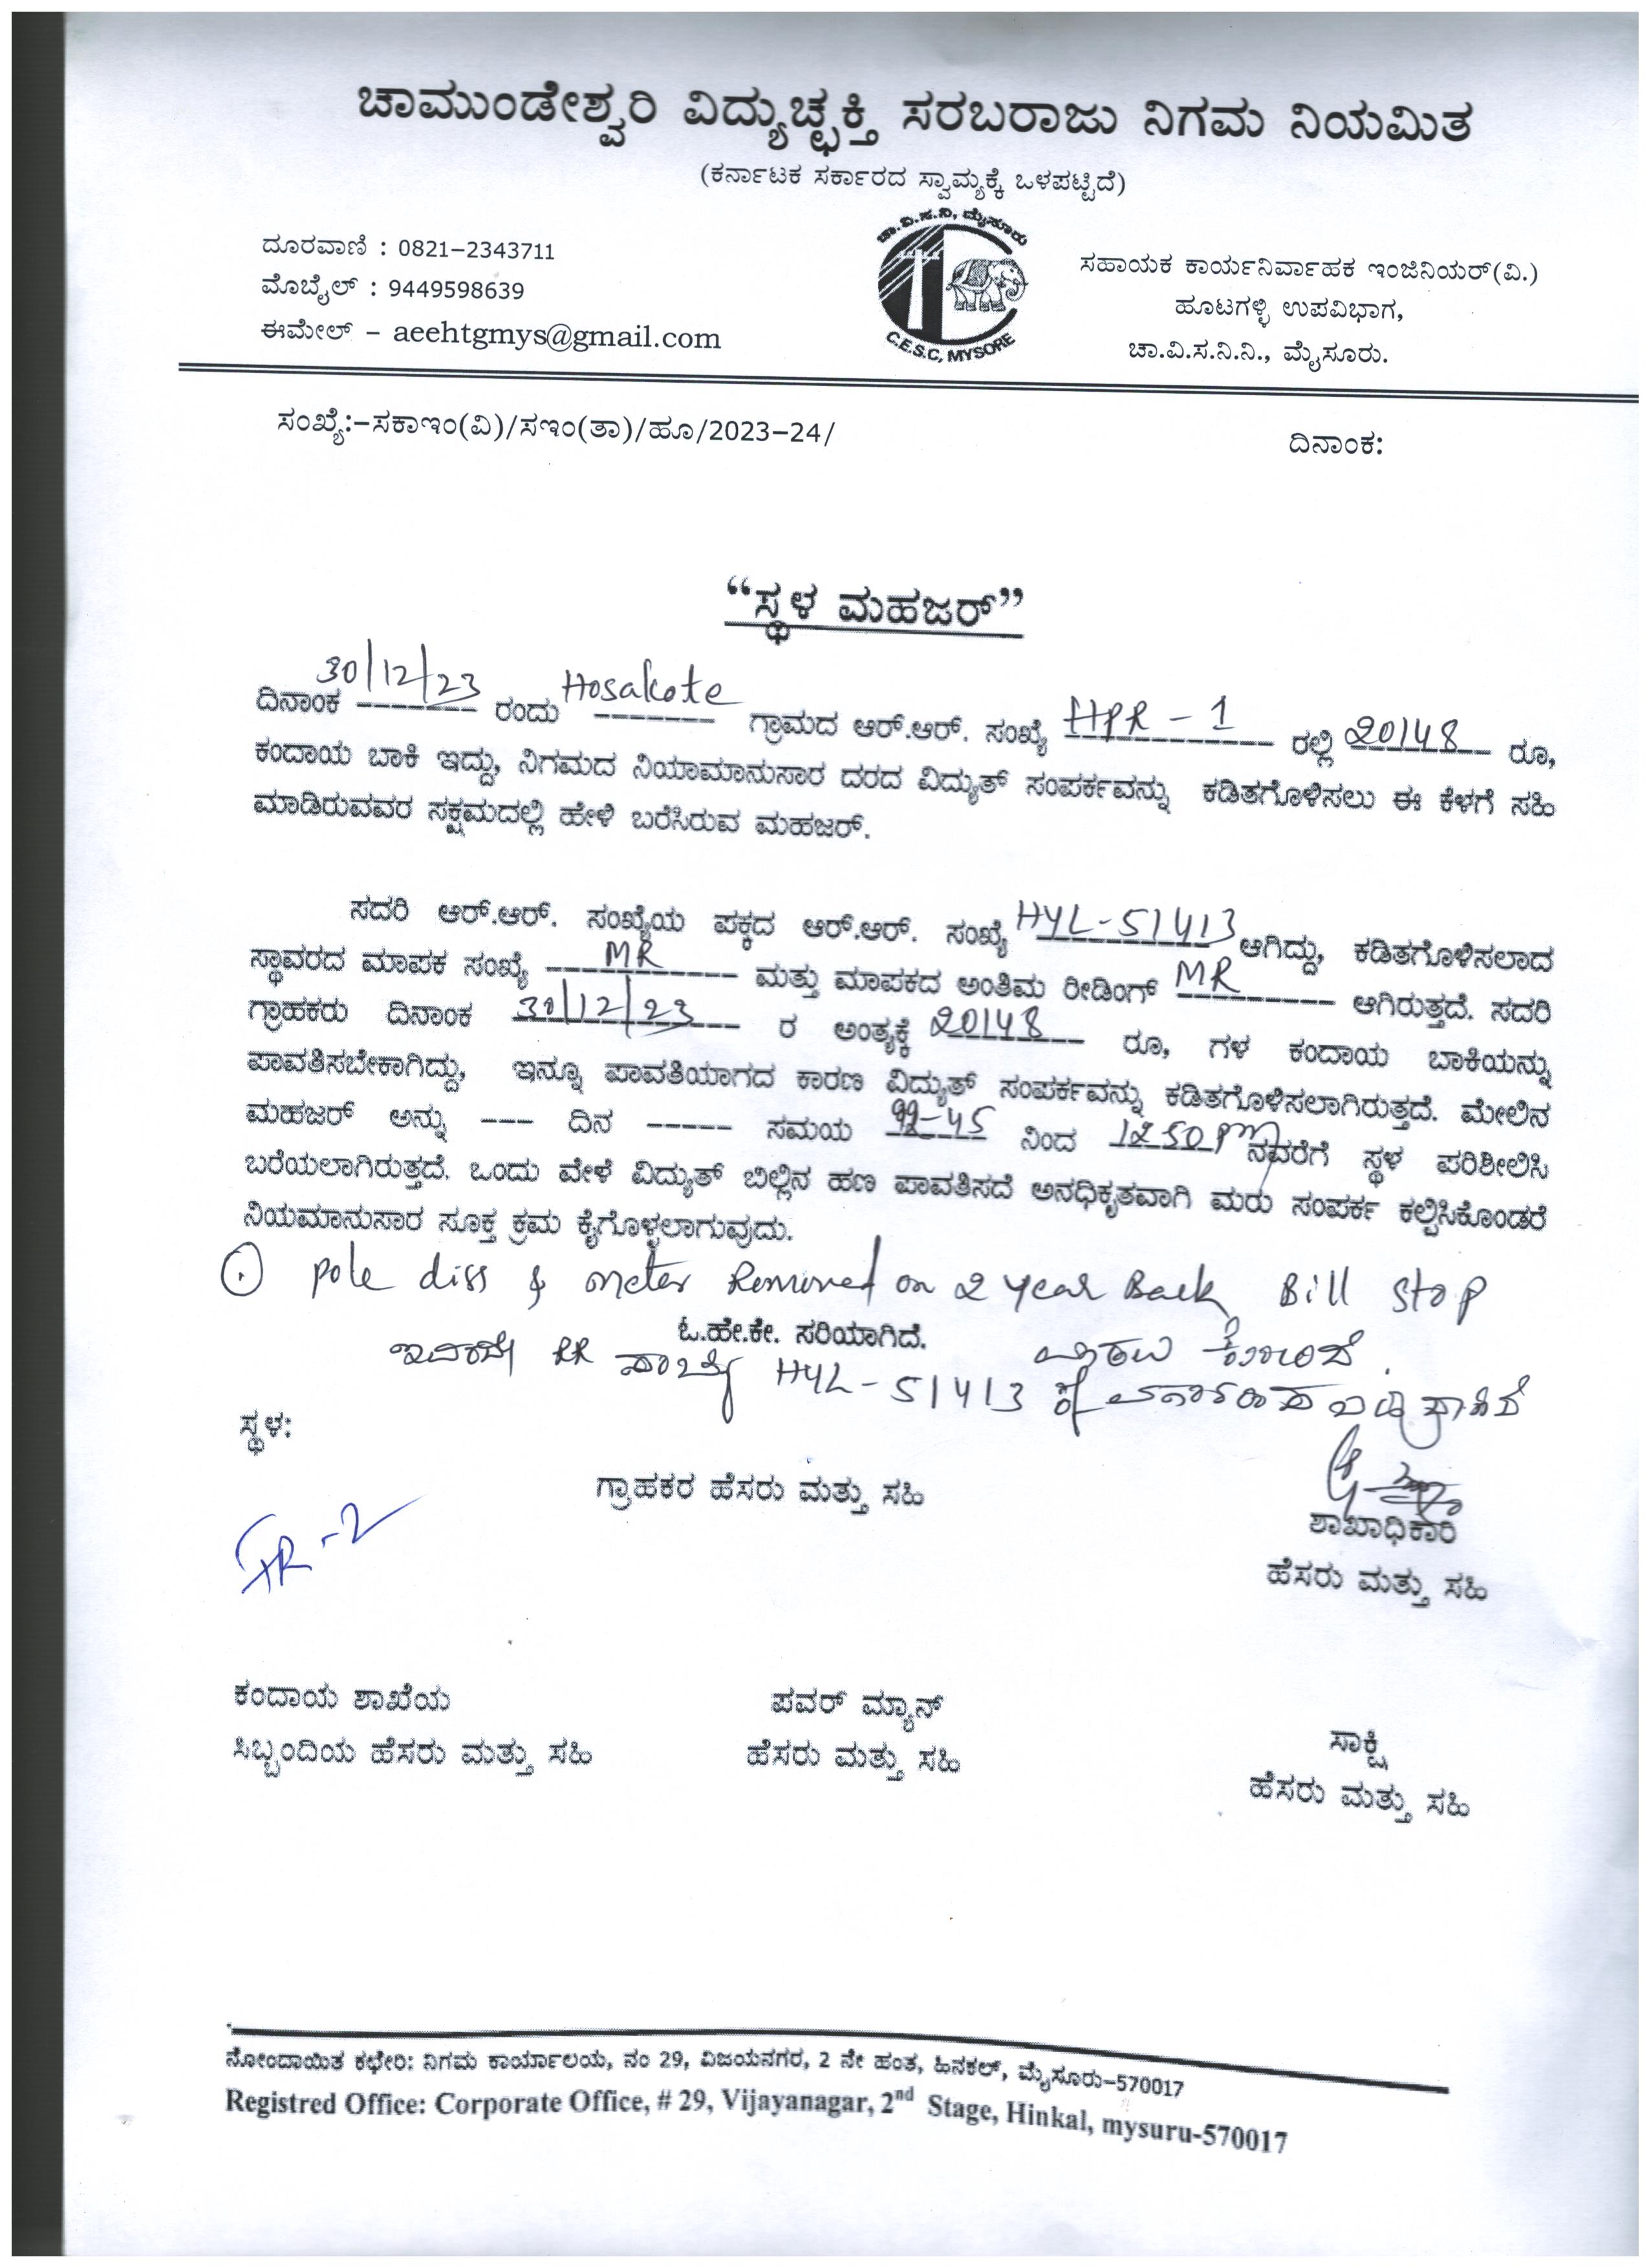 ಚಾಮುಂಡೇಶ್ವರಿ ವಿದ್ಯುಚ್ಛಕ್ತಿ ಸರಬರಾಜು ನಿಗಮ ನಿಯಮಿತ
(ಕರ್ನಾಟಕ ಸರ್ಕಾರದ ಸ್ವಾಮ್ಯಕ್ಕೆ ಒಳಪಟ್ಟಿದೆ)
ದೂರವಾಣಿ : 0821-2343711
ಮೊಬೈಲ್ : 9449598639
ಈಮೇಲ್ - aeehtgmys@gmail.com
ಚಾ.ವಿ.ಸ.ನಿ, ಮೈಸೂರು
C.E.S.C, MYSORE
ಸಹಾಯಕ ಕಾರ್ಯನಿರ್ವಾಹಕ ಇಂಜಿನಿಯರ್(ವಿ.)
ಹೂಟಗಳ್ಳಿ ಉಪವಿಭಾಗ,
ಚಾ.ವಿ.ಸ.ನಿ.ನಿ., ಮೈಸೂರು.
ಸಂಖ್ಯೆ:-ಸಕಾಇಂ(ವಿ)/ಸಇಂ(ತಾ)/ಹೂ/2023-24/ ದಿನಾಂಕ:
“ಸ್ಥಳ ಮಹಜರ್”
ದಿನಾಂಕ 30/12/23 ರಂದು Hosakote ಗ್ರಾಮದ ಆರ್.ಆರ್. ಸಂಖ್ಯೆ HPR - 1 ರಲ್ಲಿ 20148 ರೂ,
ಕಂದಾಯ ಬಾಕಿ ಇದ್ದು, ನಿಗಮದ ನಿಯಾಮಾನುಸಾರ ದರದ ವಿದ್ಯುತ್ ಸಂಪರ್ಕವನ್ನು ಕಡಿತಗೊಳಿಸಲು ಈ ಕೆಳಗೆ ಸಹಿ
ಮಾಡಿರುವವರ ಸಕ್ಷಮದಲ್ಲಿ ಹೇಳಿ ಬರೆಸಿರುವ ಮಹಜರ್.
ಸದರಿ ಆರ್.ಆರ್. ಸಂಖ್ಯೆಯ ಪಕ್ಕದ ಆರ್.ಆರ್. ಸಂಖ್ಯೆ HYL-51413 ಆಗಿದ್ದು, ಕಡಿತಗೊಳಿಸಲಾದ
ಸ್ಥಾವರದ ಮಾಪಕ ಸಂಖ್ಯೆ MR ಮತ್ತು ಮಾಪಕದ ಅಂತಿಮ ರೀಡಿಂಗ್ MR ಆಗಿರುತ್ತದೆ. ಸದರಿ
ಗ್ರಾಹಕರು ದಿನಾಂಕ 30/12/23 ರ ಅಂತ್ಯಕ್ಕೆ 20148 ರೂ, ಗಳ ಕಂದಾಯ ಬಾಕಿಯನ್ನು
ಪಾವತಿಸಬೇಕಾಗಿದ್ದು, ಇನ್ನೂ ಪಾವತಿಯಾಗದ ಕಾರಣ ವಿದ್ಯುತ್ ಸಂಪರ್ಕವನ್ನು ಕಡಿತಗೊಳಿಸಲಾಗಿರುತ್ತದೆ. ಮೇಲಿನ
ಮಹಜರ್ ಅನ್ನು --- ದಿನ ----- ಸಮಯ -45 ನಿಂದ 1250PM ನವರೆಗೆ ಸ್ಥಳ ಪರಿಶೀಲಿಸಿ
ಬರೆಯಲಾಗಿರುತ್ತದೆ. ಒಂದು ವೇಳೆ ವಿದ್ಯುತ್ ಬಿಲ್ಲಿನ ಹಣ ಪಾವತಿಸದೆ ಅನಧಿಕೃತವಾಗಿ ಮರು ಸಂಪರ್ಕ ಕಲ್ಪಿಸಿಕೊಂಡರೆ
ನಿಯಮಾನುಸಾರ ಸೂಕ್ತ ಕ್ರಮ ಕೈಗೊಳ್ಳಲಾಗುವುದು.
pole diss & meter Removed on 2 year Back Bill stop
ಓ.ಹೇ.ಕೇ. ಸರಿಯಾಗಿದೆ.
RR HYL-51413
ಸ್ಥಳ:
ಗ್ರಾಹಕರ ಹೆಸರು ಮತ್ತು ಸಹಿ
ಶಾಖಾಧಿಕಾರಿ
ಹೆಸರು ಮತ್ತು ಸಹಿ
ಕಂದಾಯ ಶಾಖೆಯ
ಸಿಬ್ಬಂದಿಯ ಹೆಸರು ಮತ್ತು ಸಹಿ
ಪವರ್ ಮ್ಯಾನ್
ಹೆಸರು ಮತ್ತು ಸಹಿ
ಸಾಕ್ಷಿ
ಹೆಸರು ಮತ್ತು ಸಹಿ
ನೋಂದಾಯಿತ ಕಛೇರಿ: ನಿಗಮ ಕಾರ್ಯಾಲಯ, ನಂ 29, ವಿಜಯನಗರ, 2 ನೇ ಹಂತ, ಹಿನಕಲ್, ಮೈಸೂರು-570017
Registred Office: Corporate Office, # 29, Vijayanagar, 2nd Stage, Hinkal, mysuru-570017